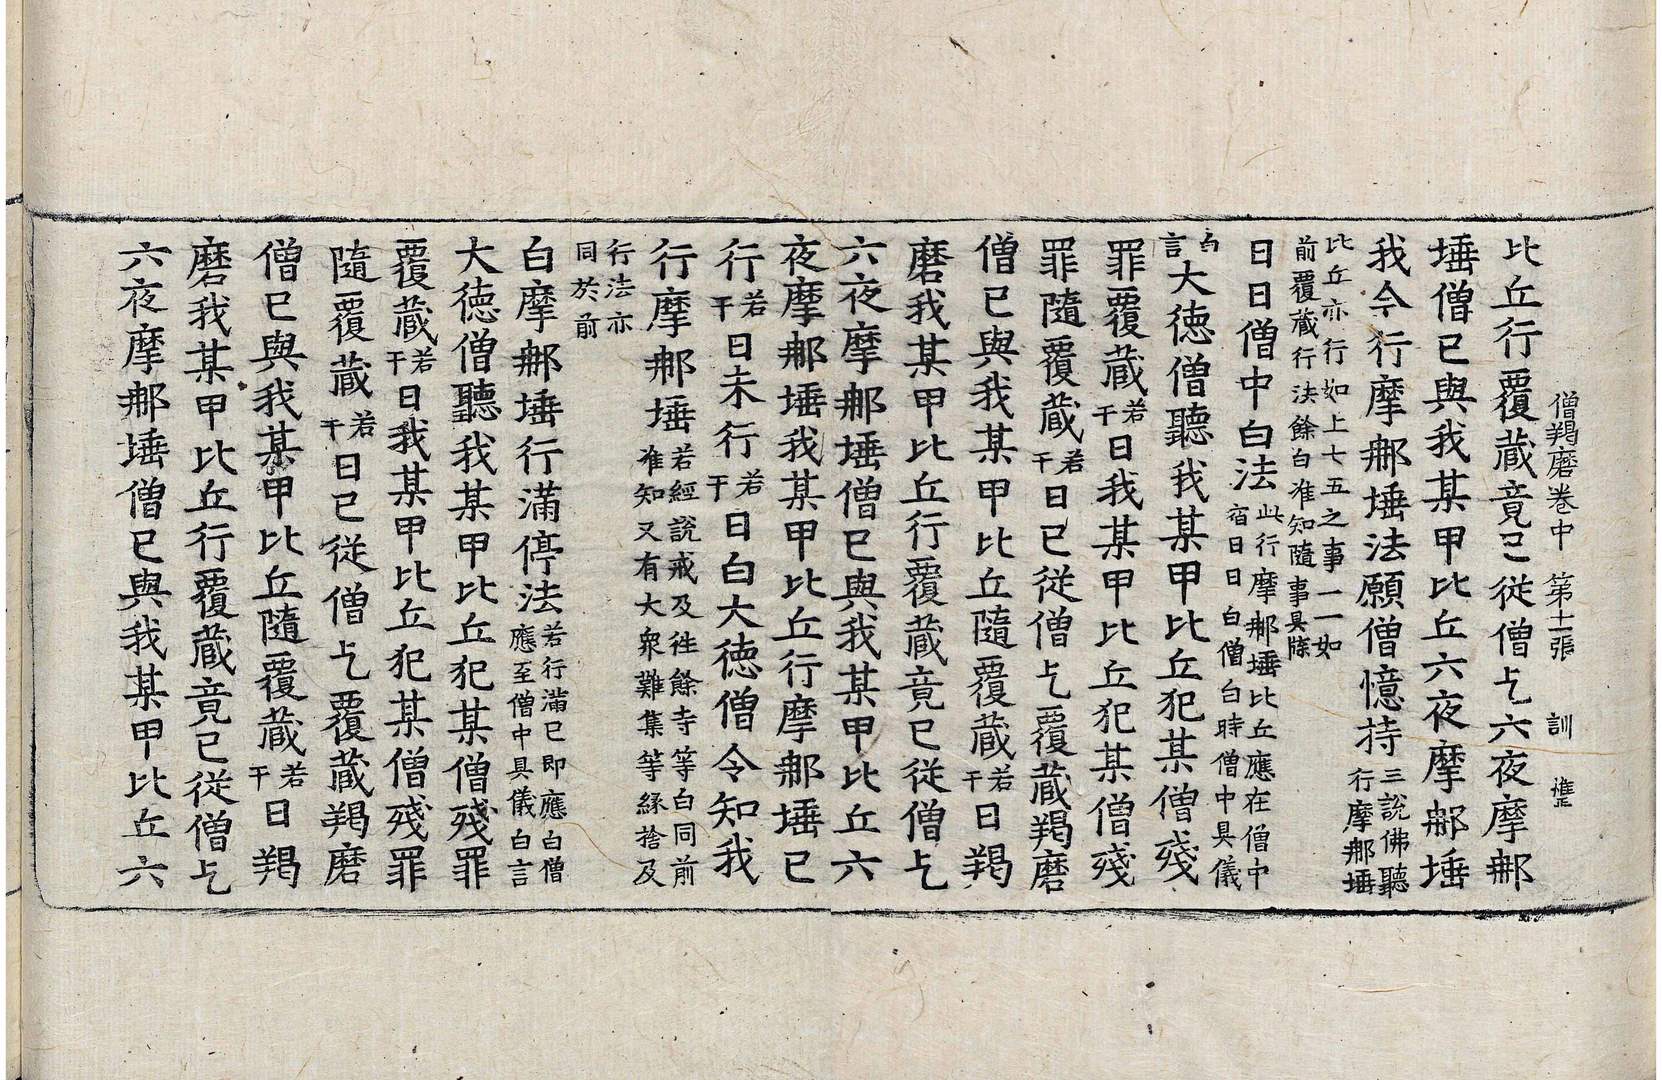 僧羯磨卷中 第十一張 訓
比丘行覆藏竟已從僧乞六夜摩那
埵僧已與我某甲比丘六夜摩那埵
我今行摩那埵法願僧憶持三說佛聽行摩那埵
比丘亦行如上七五之事一一如前覆藏行法餘白准知隨事具牒
日日僧中白法此行摩那埵比丘應在僧中宿日日白僧白時僧中具儀
白言大徳僧聽我某甲比丘犯某僧殘
罪覆藏若干日我某甲比丘犯某僧殘
罪隨覆藏若干日已從僧乞覆藏羯磨
僧已與我某甲比丘隨覆藏若干日羯
磨我某甲比丘行覆藏竟已從僧乞
六夜摩那埵僧已與我某甲比丘六
夜摩那埵我某甲比丘行摩那埵已
行若干日未行若干日白大徳僧令知我
行摩那埵若經說戒及往餘寺等白同前准知又有大衆難集等緣捨及
行法亦同於前
白摩那埵行滿停法若行滿已即應白僧應至僧中具儀白言
大徳僧聽我某甲比丘犯某僧殘罪
覆藏若干日我某甲比丘犯某僧殘罪
隨覆藏若干日已從僧乞覆藏羯磨
僧已與我某甲比丘隨覆藏若干日羯
磨我某甲比丘行覆藏竟已從僧乞
六夜摩那埵僧已與我某甲比丘六